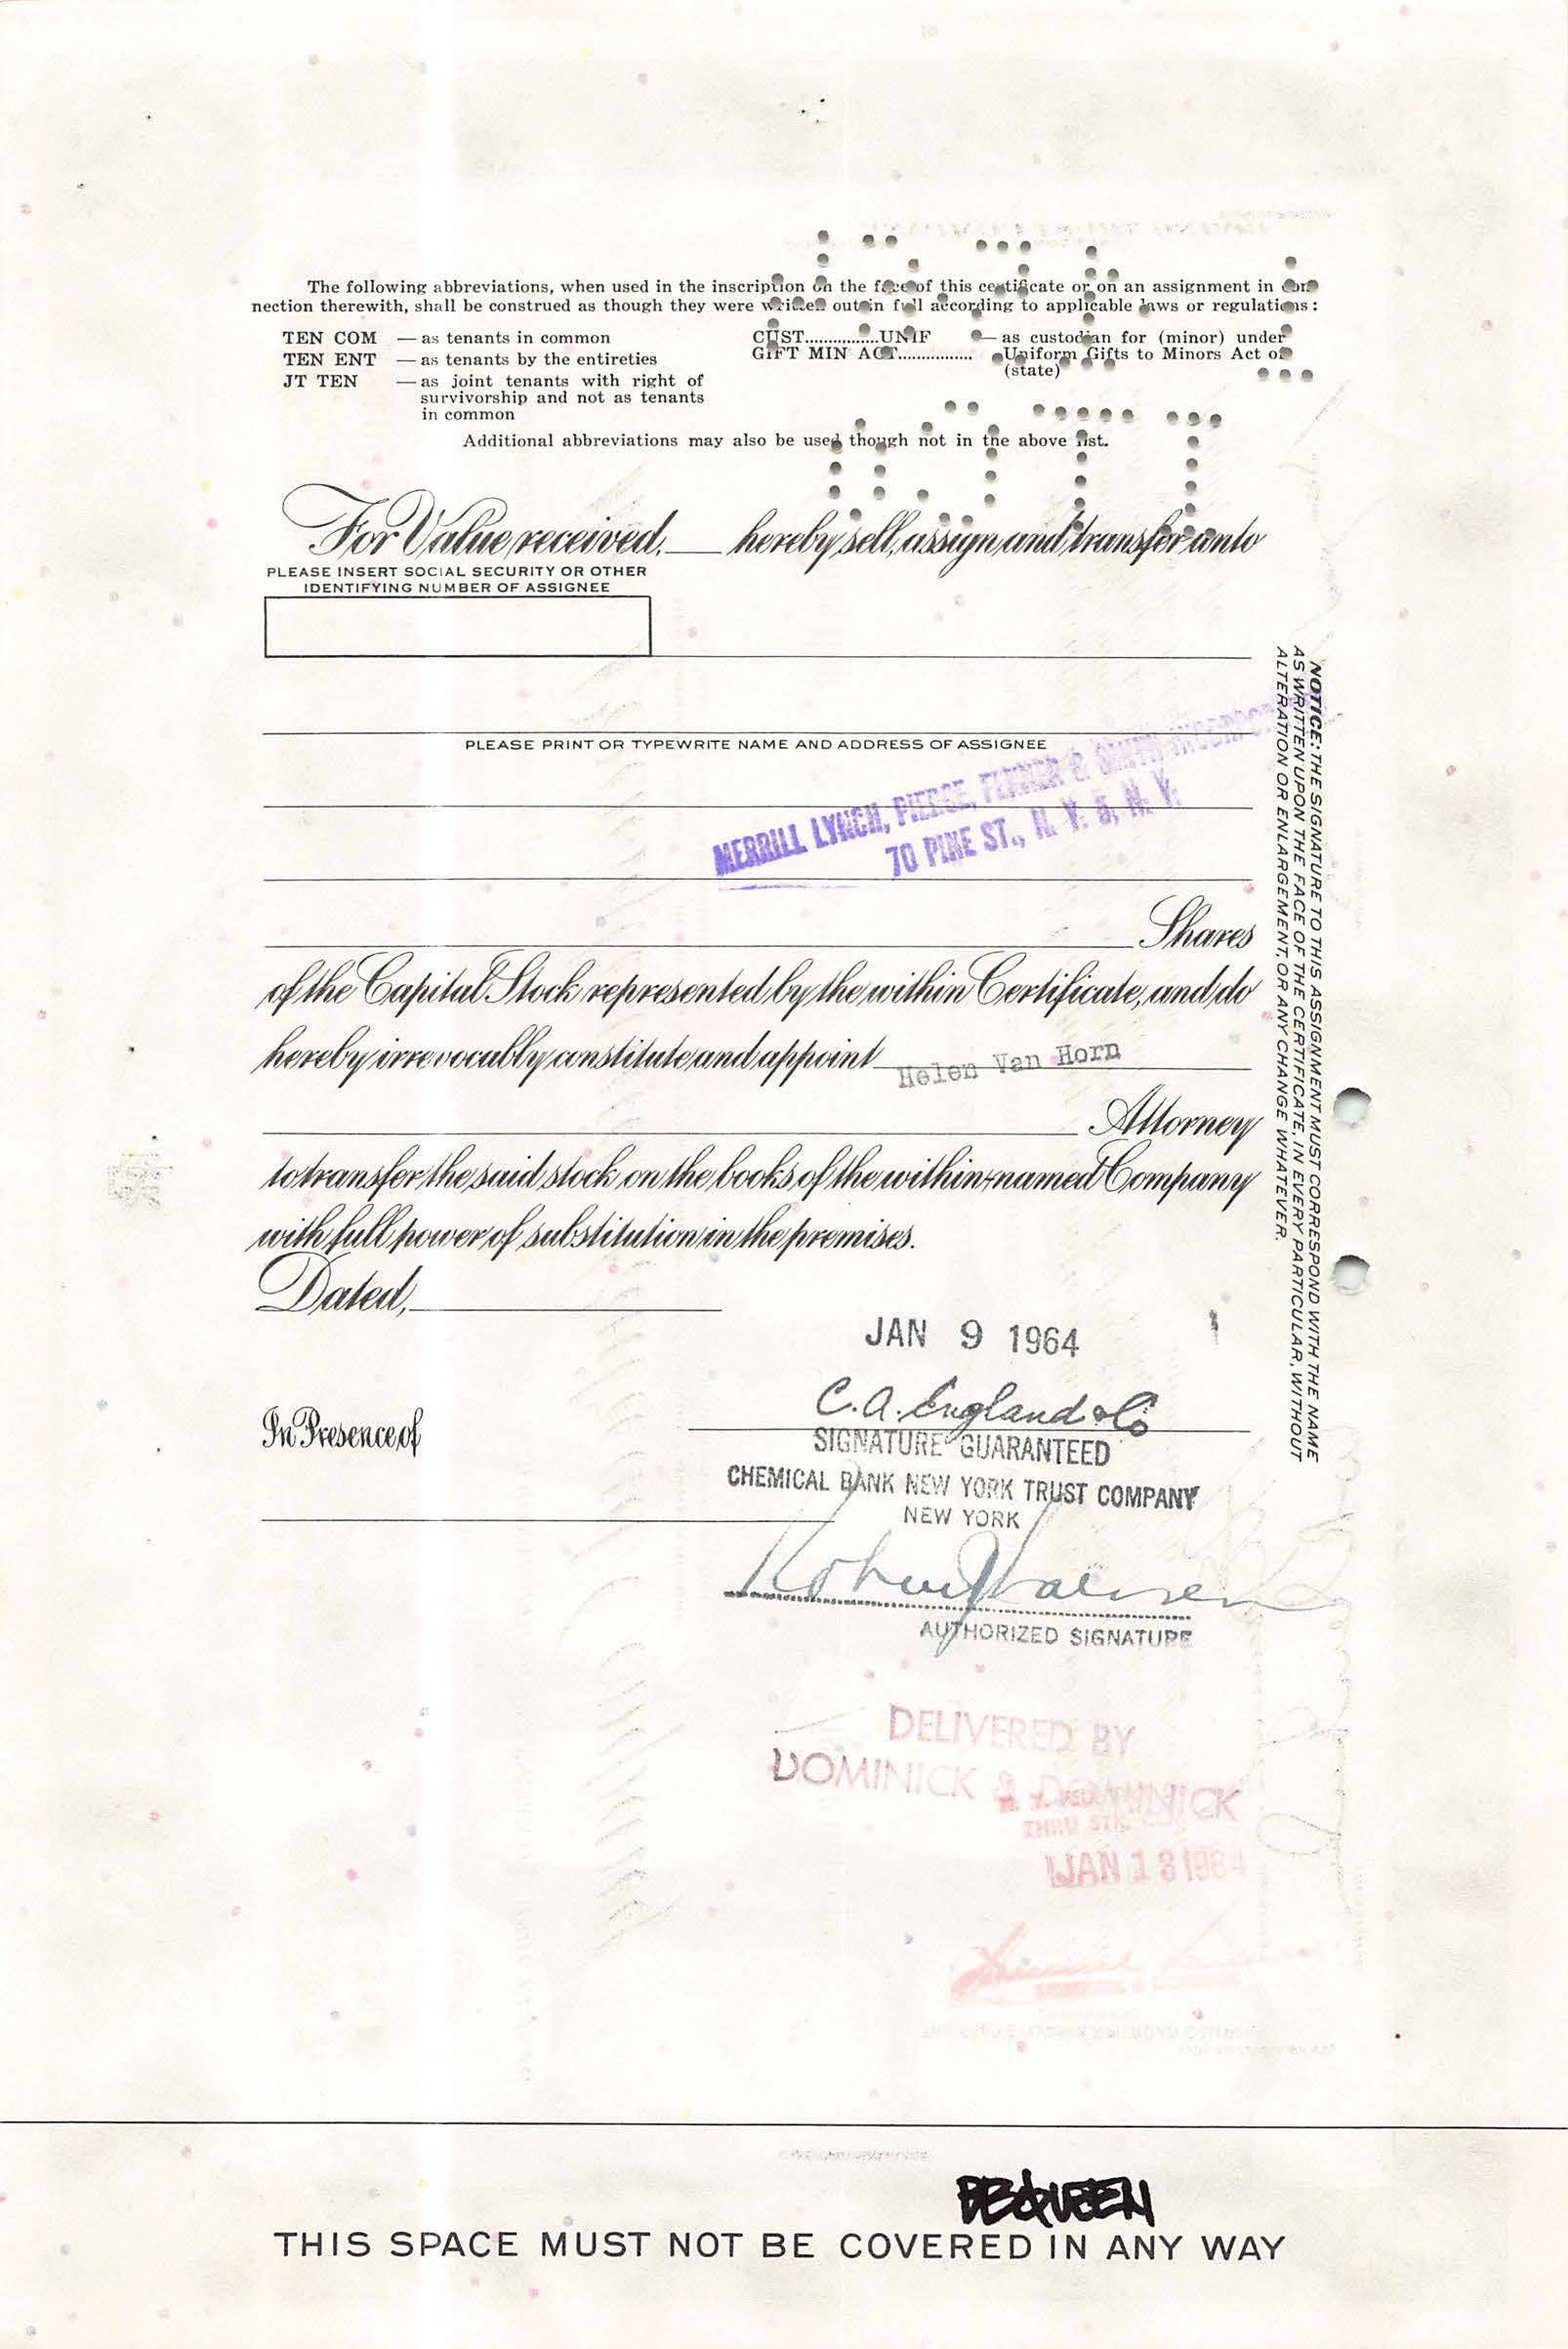 The following abbreviations, when used in the inscription on the face of this certificate or on an assignment in con-
nection therewith, shall be construed as though they were written out in full according to applicable laws or regulations:
TEN COM — as tenants in common
TEN ENT — as tenants by the entireties
JT TEN — as joint tenants with right of
survivorship and not as tenants
in common
CUST................UNIF — as custodian for (minor) under
GIFT MIN ACT................ Uniform Gifts to Minors Act of
(state)
Additional abbreviations may also be used though not in the above list.
For Value received, ____ hereby sell, assign and transfer unto
PLEASE INSERT SOCIAL SECURITY OR OTHER
IDENTIFYING NUMBER OF ASSIGNEE
PLEASE PRINT OR TYPEWRITE NAME AND ADDRESS OF ASSIGNEE
MERRILL LYNCH, PIERCE, FENNER & SMITH
70 PINE ST., N. Y. 5, N. Y.
Shares
of the Capital Stock represented by the within Certificate, and do
hereby irrevocably constitute and appoint Helen Van Horn
Attorney
to transfer the said stock on the books of the within-named Company
with full power of substitution in the premises.
Dated,
JAN 9 1964
C. A. England & Co
In Presence of
SIGNATURE GUARANTEED
CHEMICAL BANK NEW YORK TRUST COMPANY
NEW YORK
AUTHORIZED SIGNATURE
DELIVERED BY
DOMINICK & DOMINICK
THRU STK.
JAN 13 1964
NOTICE: THE SIGNATURE TO THIS ASSIGNMENT MUST CORRESPOND WITH THE NAME
AS WRITTEN UPON THE FACE OF THE CERTIFICATE, IN EVERY PARTICULAR, WITHOUT
ALTERATION OR ENLARGEMENT, OR ANY CHANGE WHATEVER.
THIS SPACE MUST NOT BE COVERED IN ANY WAY